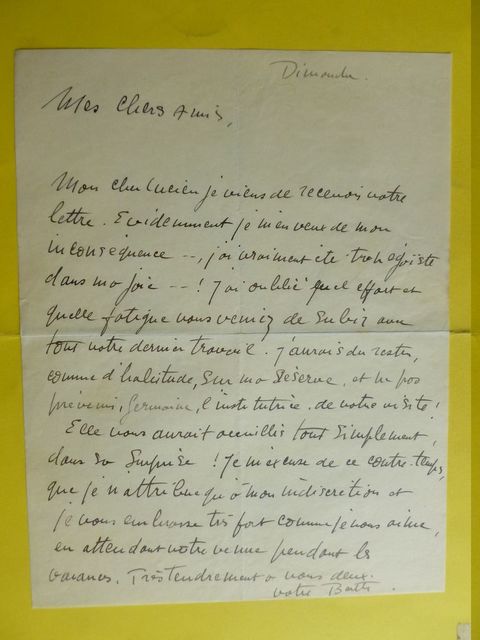 Dimanche.
Mes chers amis,
Mon cher Lucien je viens de recevoir votre
lettre. Evidemment je m'en veux de mon
inconséquence --, j'ai vraiment été trop égoïste
dans ma joie --! J'ai oublié quel effort et
quelle fatigue vous veniez de subir avec
tout votre dernier travail. J'aurais du rester,
comme d'habitude, sur ma réserve, et ne pas
prévenir, Germaine, l'institutrice, de votre visite!
Elle vous aurait accueillis tout simplement,
dans sa surprise! Je m'excuse de ce contre-temps,
que je n'attribue qu'à mon indiscrétion et
je vous embrasse très fort comme je vous aime,
en attendant votre venue pendant les
vacances. Très tendrement à vous deux.
votre